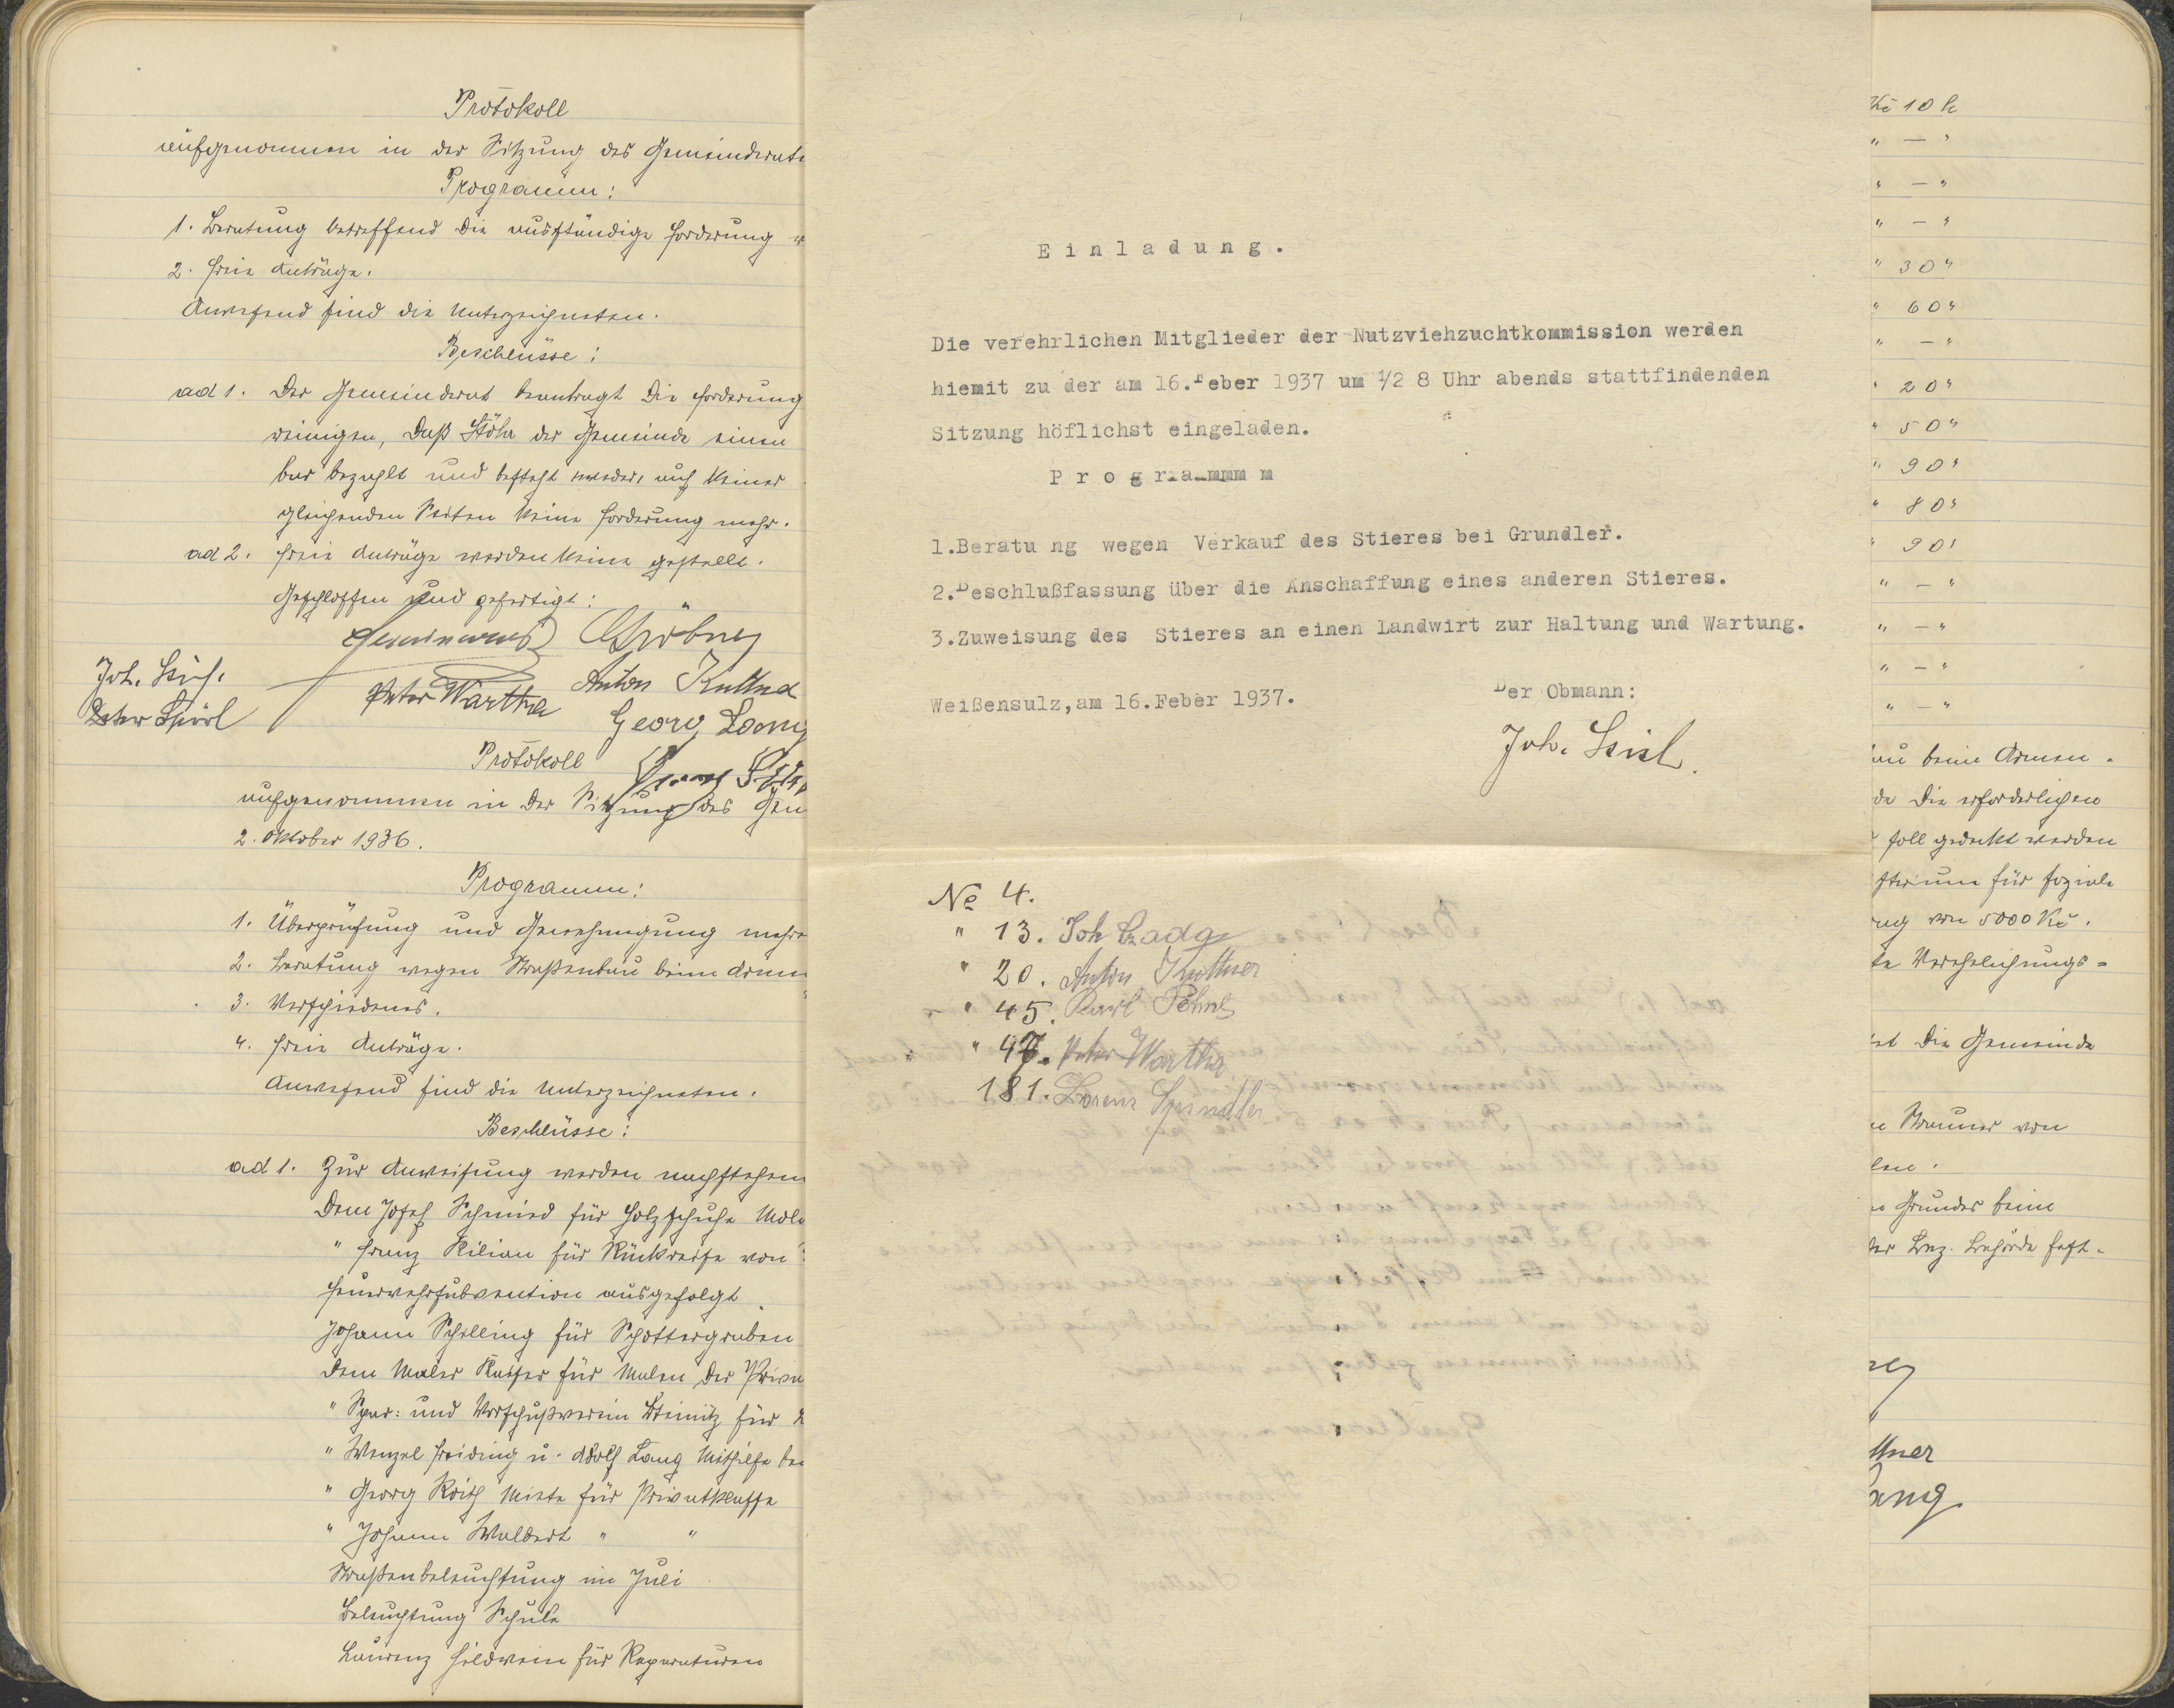 Protokoll
aufgenommen in der Sitzung des Gemeinderate
Programm:
1. Beratung betreffend die ausständige Forderung
2. freie Anträge.
Anwesend sind die Unterzeichneten.
Beschlüsse:
ad 1. Der Gemeinderat beantragt die Forderung
reinigen, daß Stöhr der Gemeinde einen
bar bezahlt und besteht weder auf keiner
gleichenden Seiten keine Forderung mehr.
ad 2. freie Anträge werden keine gestellt.
Geschlossen und gefertigt:
Gröbner
Joh. Leisl.
Anton Kuttne
Peter Wartha
Peter Spörl
Georg Lang
Protokoll
aufgenommen in der Sitzung des Gem
2. Oktober 1936.
Programm:
1. Überprüfung und Genehmigung mehre
2. Beratung wegen Straßenbau beim Armen
3. Verschiedenes.
4. freie Anträge.
Anwesend sind die Unterzeichneten.
Beschlüsse:
ad 1. Zur Anweisung werden nachstehen
Dem Josef Schmied für Holzschuhe
" Franz Kilian für Rückreise von
Feuerwehrsubvention ausgefolgt
Johann Schilling für Schottergraben
Dem Maler Kaiser für Malen der Priva
" Spar: und Vorschußverein für
" Wenzel Freiding u. Adolf Lang Mithilfe bei
" Georg Roith Miete für Privatklasse
" Johann Waldert " "
Straßenbeleuchtung im Juli
Beleuchtung Schule
Laurenz Hildwein für Reparaturen
Einladung.
Die verehrlichen Mitglieder der Nutzviehzuchtkommission werden
hiemit zu der am 16.Feber 1937 um 1/2 8 Uhr abends stattfindenden
Sitzung höflichst eingeladen.
Programmm m
1.Beratu ng wegen Verkauf des Stieres bei Grundler.
2.Beschlußfassung über die Anschaffung eines anderen Stieres.
3.Zuweisung des Stieres an einen Landwirt zur Haltung und Wartung.
Weißensulz,am 16.Feber 1937.
Der Obmann:
Joh. Leisl.
No 4.
" 13. Joh
" 20. Anton Kuttner
" 45. Karl
" 47. Peter Wartha
181. Lorenz Spindler
Kč 10 h
" — "
" — "
" — "
" 30 "
" 60 "
" — "
" 20 "
" 50 "
" 90 "
" 80 "
" 90 "
" — "
" — "
" — "
" — "
au beim Armen-
de die erforderlichen
soll gedeckt werden
sterium für soziale
ng von 5000 Kč.
te Verehelichungs-
et die Gemeinde
von
len.
n Grundes beim
der Bez. Behörde fest-
ttner
ang